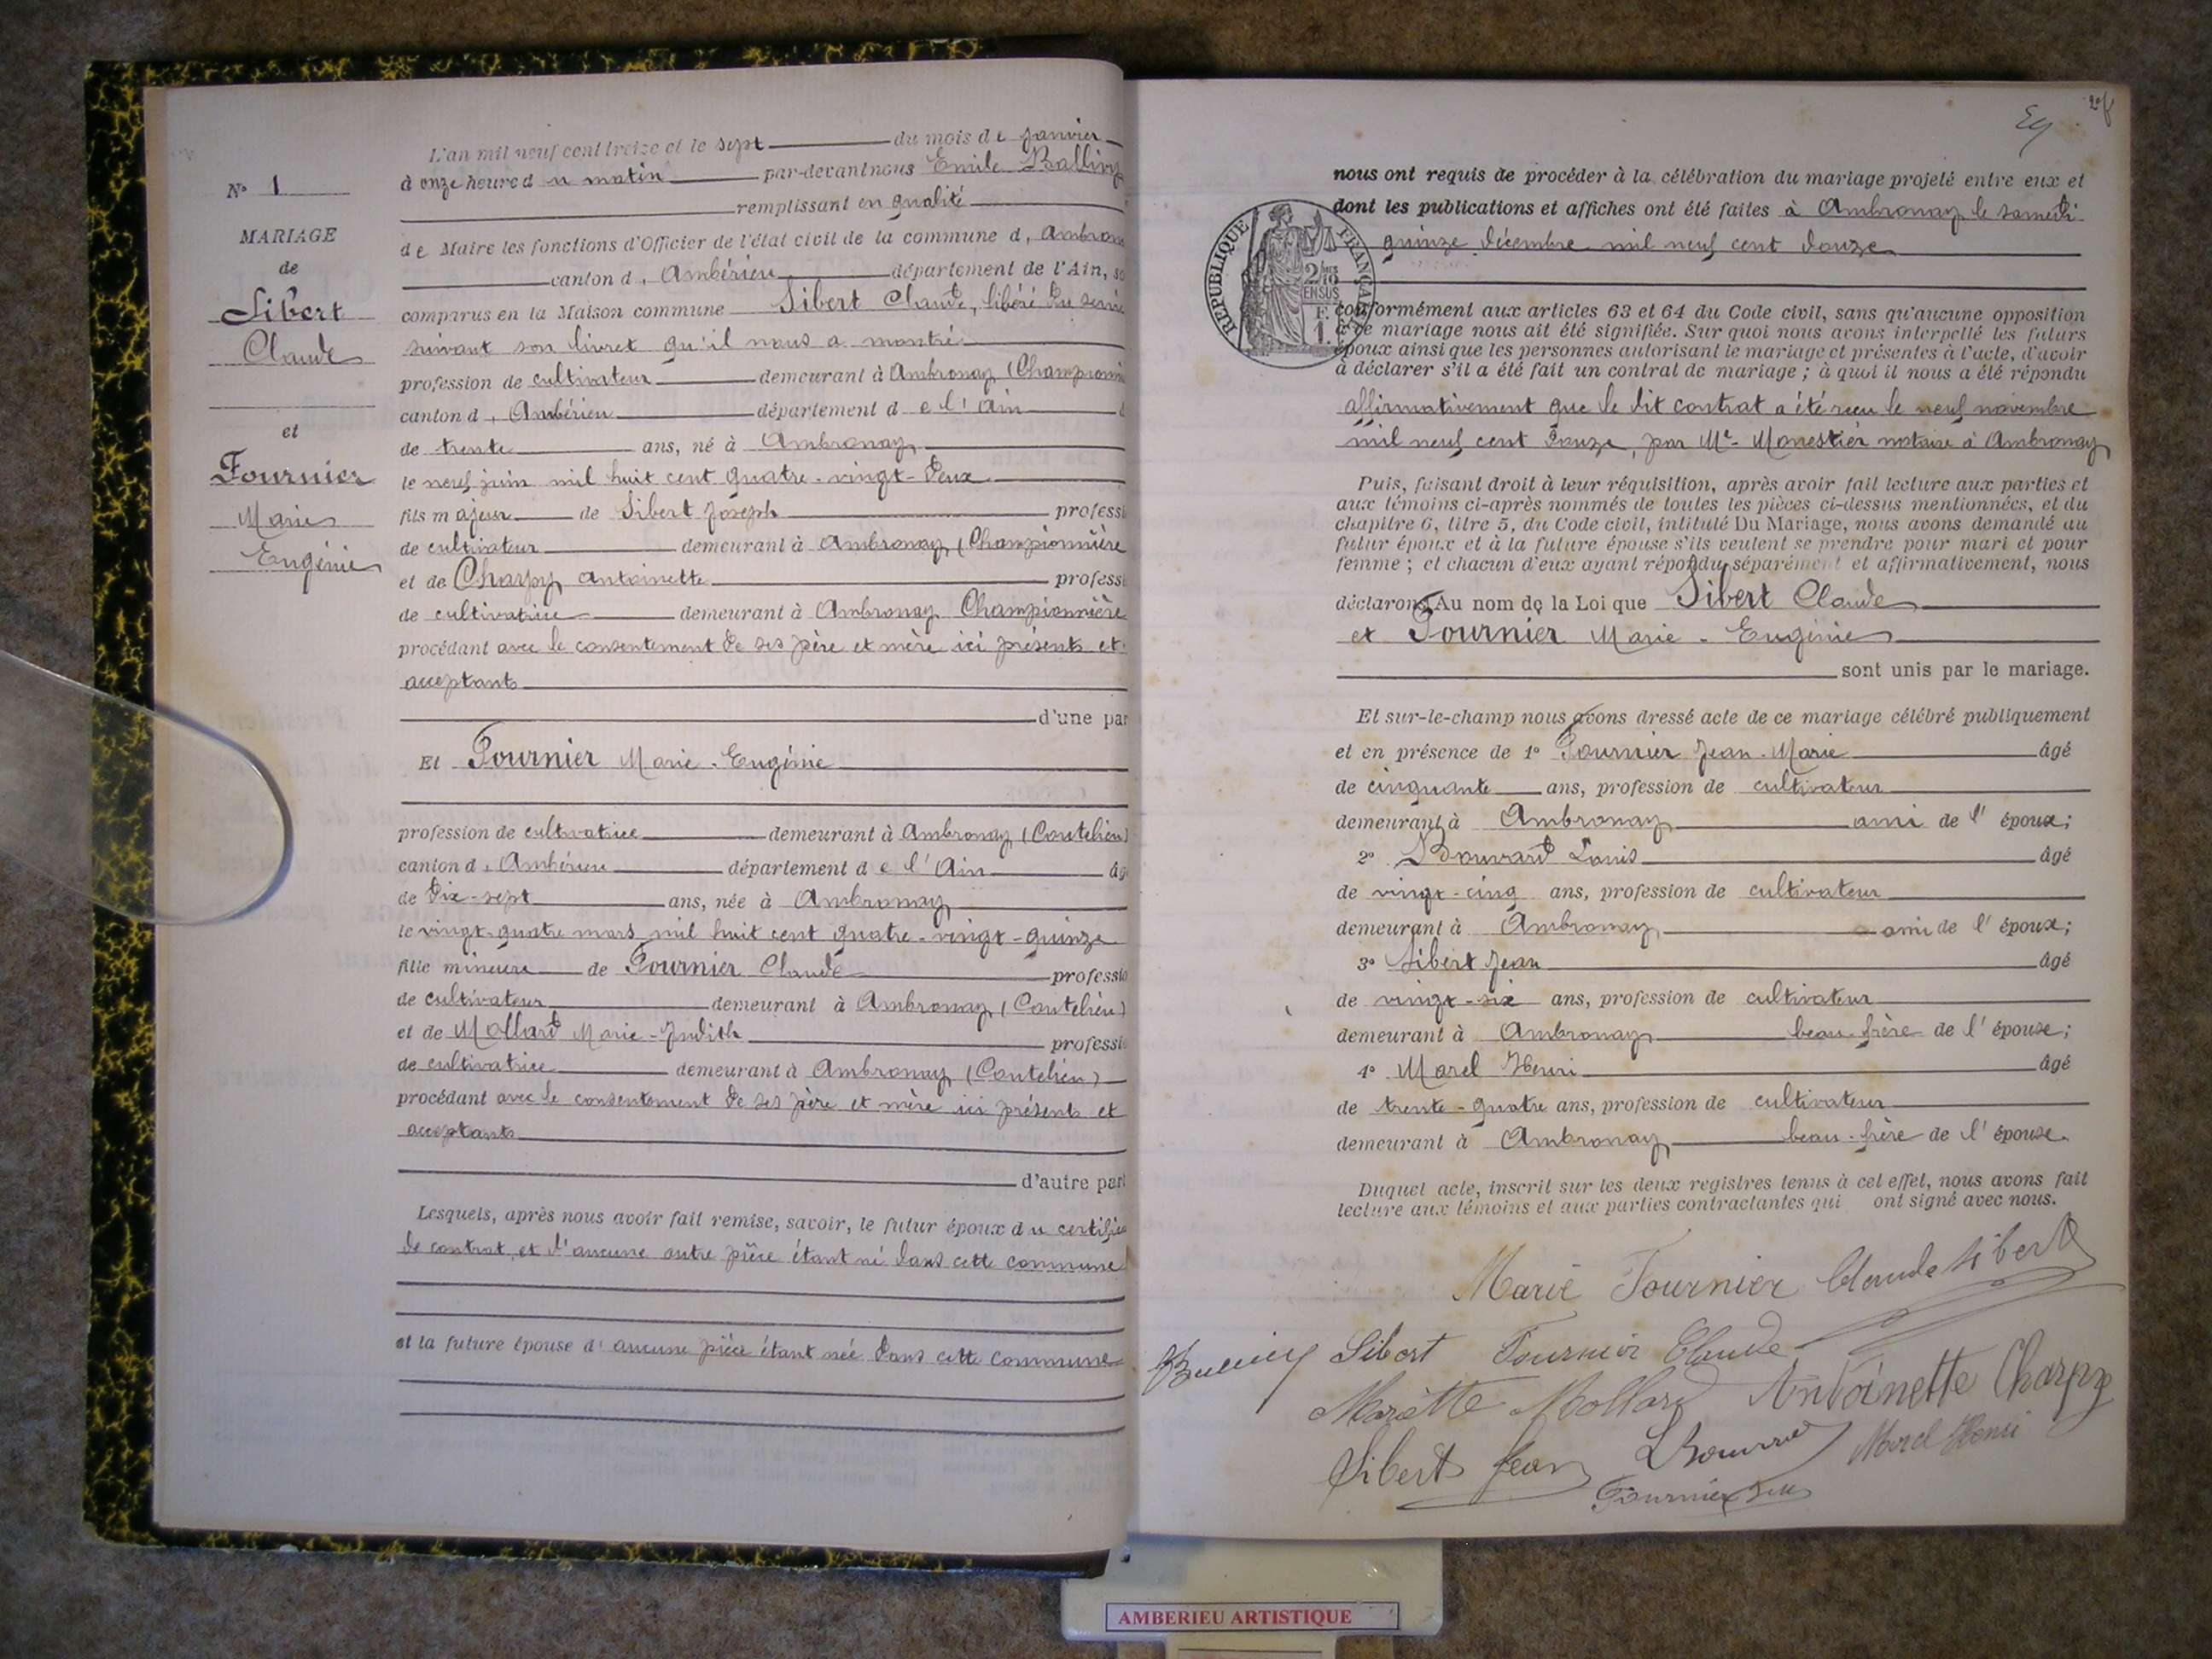 N° 1
MARIAGE
de
Sibert
Claude
et
Fournier
Marie
Eugénie
L'an mil neuf cent treize et le sept du mois de Janvier
à onze heure du matin par-devant nous Emile Ballivy
remplissant en qualité
de Maire les fonctions d'Officier de l'état civil de la commune d, Ambron
canton d, Ambérieu département de l'Ain, so
comparus en la Maison commune Sibert Claude, libéré du servic
suivant son livret qu'il nous a montré
profession de cultivateur demeurant à Ambronay (Championni
canton d, Ambérieu département de l'Ain
de trente ans, né à Ambronay
le neuf juin mil huit cent quatre-vingt-deux
fils majeur de Sibert Joseph professi
de cultivateur demeurant à Ambronay (Championnière
et de Charpy Antoinette professi
de cultivatrice demeurant à Ambronay Championnière
procédant avec le consentement de ses père et mère ici présents et
acceptants
d'une par
Et Fournier Marie-Eugénie
profession de cultivatrice demeurant à Ambronay (Coutelieu)
canton d, Ambérieu département de l'Ain âg
de dix-sept ans, née à Ambronay
le vingt-quatre mars mil huit cent quatre-vingt-quinze
fille mineure de Fournier Claude professio
de cultivateur demeurant à Ambronay (Coutelieu)
et de Mollard Marie-Judith professi
de cultivatrice demeurant à Ambronay (Coutelieu)
procédant avec le consentement de ses père et mère ici présents et
acceptants
d'autre part
Lesquels, après nous avoir fait remise, savoir, le futur époux du certific
de contrat et d'aucune autre pièce étant né dans cette commune
et la future épouse d'aucune pièce étant née dans cette commune
nous ont requis de procéder à la célébration du mariage projeté entre eux et
dont les publications et affiches ont été faites à Ambronay le samedi
quinze décembre mil neuf cent douze
RÉPUBLIQUE FRANÇAISE
conformément aux articles 63 et 64 du Code civil, sans qu'aucune opposition
à ce mariage nous ait été signifiée. Sur quoi nous avons interpellé les futurs
époux ainsi que les personnes autorisant le mariage et présentes à l'acte, d'avoir
à déclarer s'il a été fait un contrat de mariage ; à quoi il nous a été répondu
affirmativement que le dit contrat a été reçu le neuf novembre
mil neuf cent douze, par Me. Monestier notaire à Ambronay
Puis, faisant droit à leur réquisition, après avoir fait lecture aux parties et
aux témoins ci-après nommés de toutes les pièces ci-dessus mentionnées, et du
chapitre 6, titre 5, du Code civil, intitulé Du Mariage, nous avons demandé au
futur époux et à la future épouse s'ils veulent se prendre pour mari et pour
femme ; et chacun d'eux ayant répondu séparément et affirmativement, nous
déclarons Au nom de la Loi que Sibert Claude
et Fournier Marie-Eugénie
sont unis par le mariage.
Et sur-le-champ nous avons dressé acte de ce mariage célébré publiquement
et en présence de 1° Fournier Jean-Marie âgé
de cinquante ans, profession de cultivateur
demeurant à Ambronay ami de l'époux;
2° Bouvard Louis âgé
de vingt-cinq ans, profession de cultivateur
demeurant à Ambronay ami de l'époux;
3° Sibert Jean âgé
de vingt-six ans, profession de cultivateur
demeurant à Ambronay beau-frère de l'épouse;
4° Morel Henri âgé
de trente-quatre ans, profession de cultivateur
demeurant à Ambronay beau-frère de l'épouse.
Duquel acte, inscrit sur les deux registres tenus à cet effet, nous avons fait
lecture aux témoins et aux parties contractantes qui ont signé avec nous.
Marie Fournier Claude Sibert
Sibert Fournier Claude
Mariette Mollard Antoinette Charpy
Sibert Jean Morel Henri
Fournier
AMBERIEU ARTISTIQUE